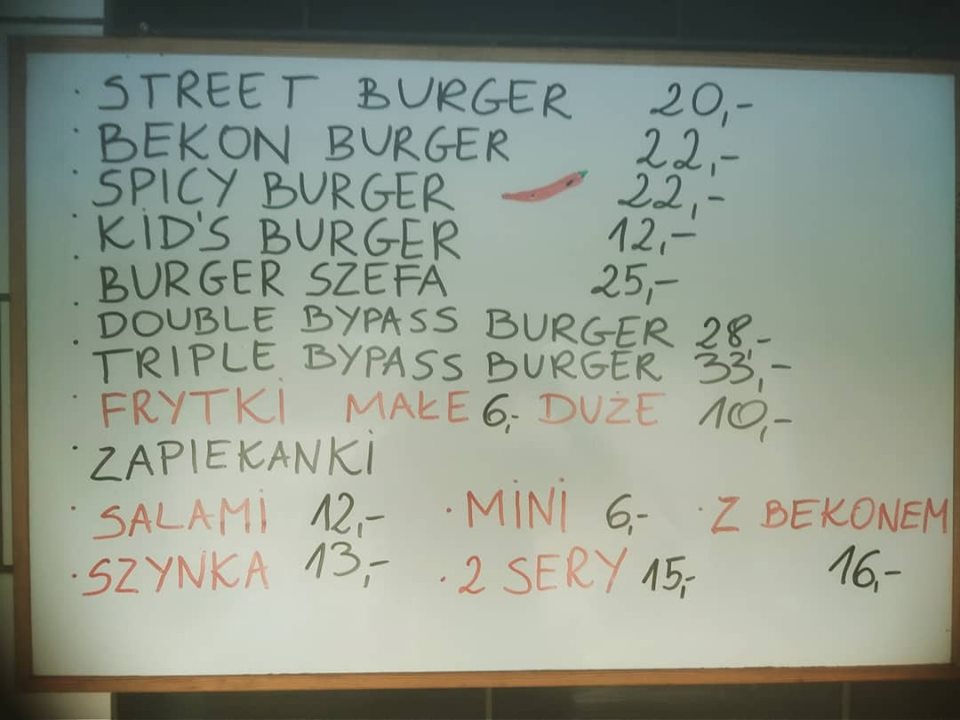 · STREET BURGER 20,-
· BEKON BURGER 22,-
· SPICY BURGER 22,-
· KID'S BURGER 12,-
· BURGER SZEFA 25,-
· DOUBLE BYPASS BURGER 28,-
· TRIPLE BYPASS BURGER 33,-
· FRYTKI MAŁE 6,- DUŻE 10,-
· ZAPIEKANKI
· SALAMI 12,- · MINI 6,- · Z BEKONEM
· SZYNKA 13,- · 2 SERY 15,- 16,-